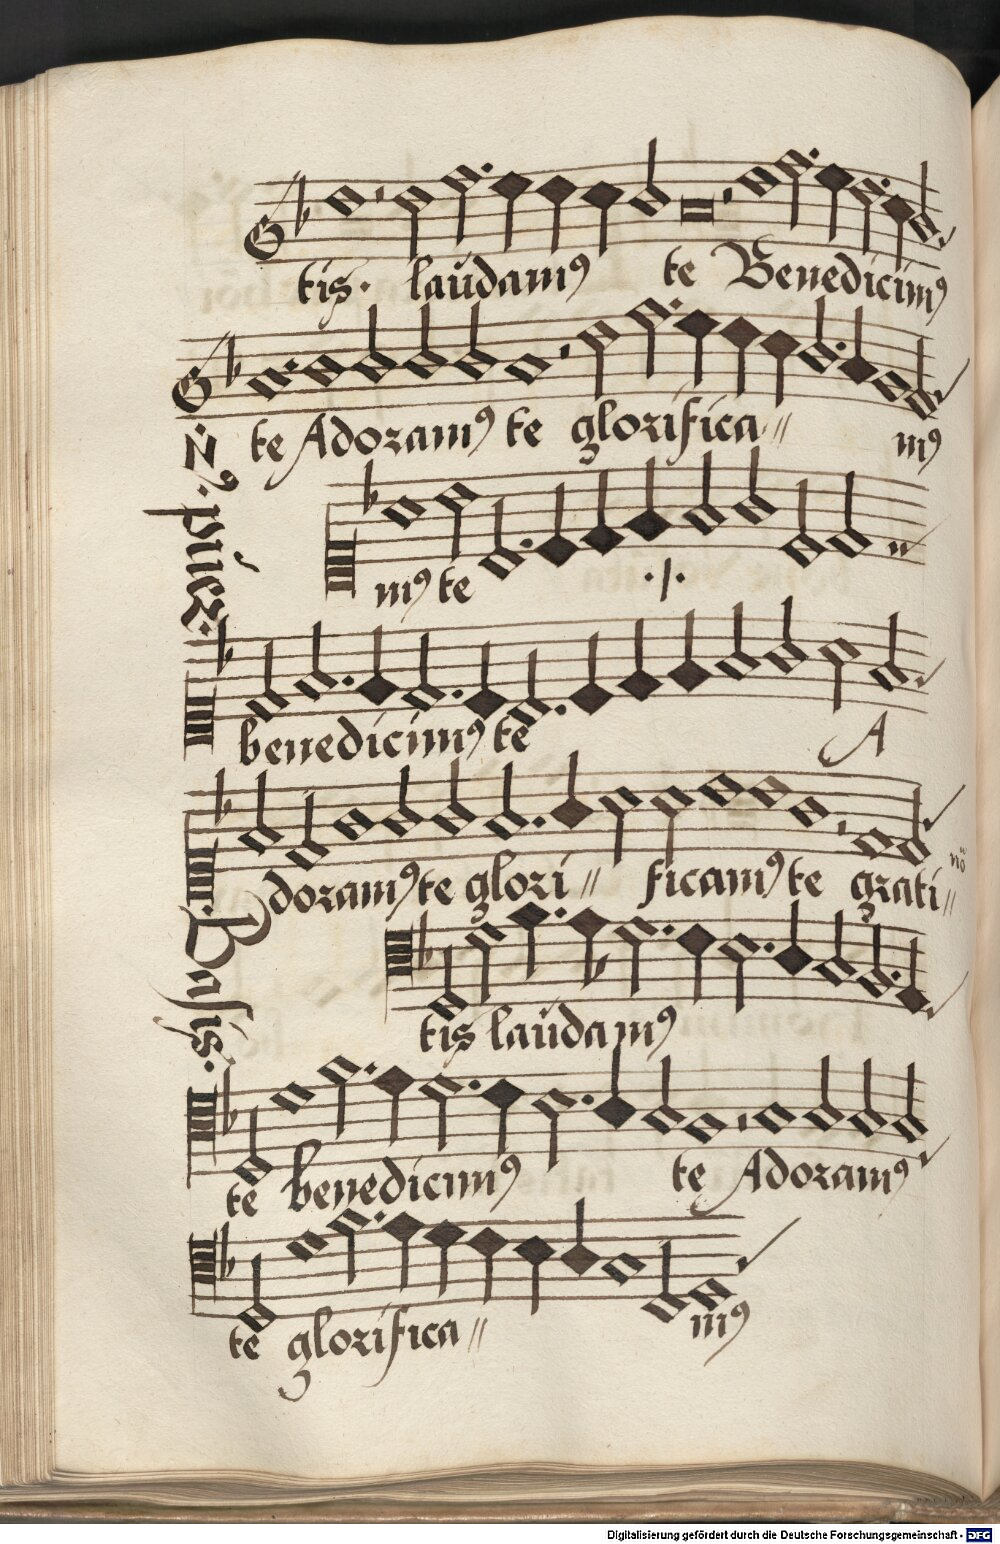 tis. laudamꝰ te Benedicimꝰ
te Adoramꝰ te glorifica // mꝰ
2ꝰ. puer.
mꝰ te ·/·
benedicimꝰ te A
doramꝰ te glori // ficamꝰ te grati //
Basis.
tis laudamꝰ
te benedicimꝰ te Adoramꝰ
te glorifica // mꝰ
Digitalisierung gefördert durch die Deutsche Forschungsgemeinschaft - DFG